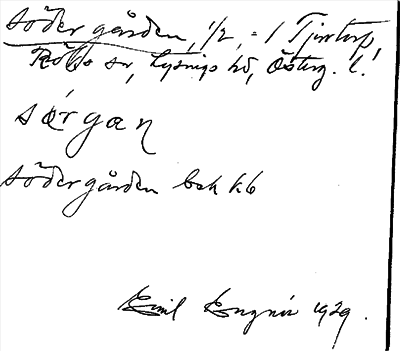 Södergården, 1/2, = 1 Tjärtorp,
Röks sn, Lysings hd, Österg. l.
særgan
Södergården bsk k6
Emil 1929.